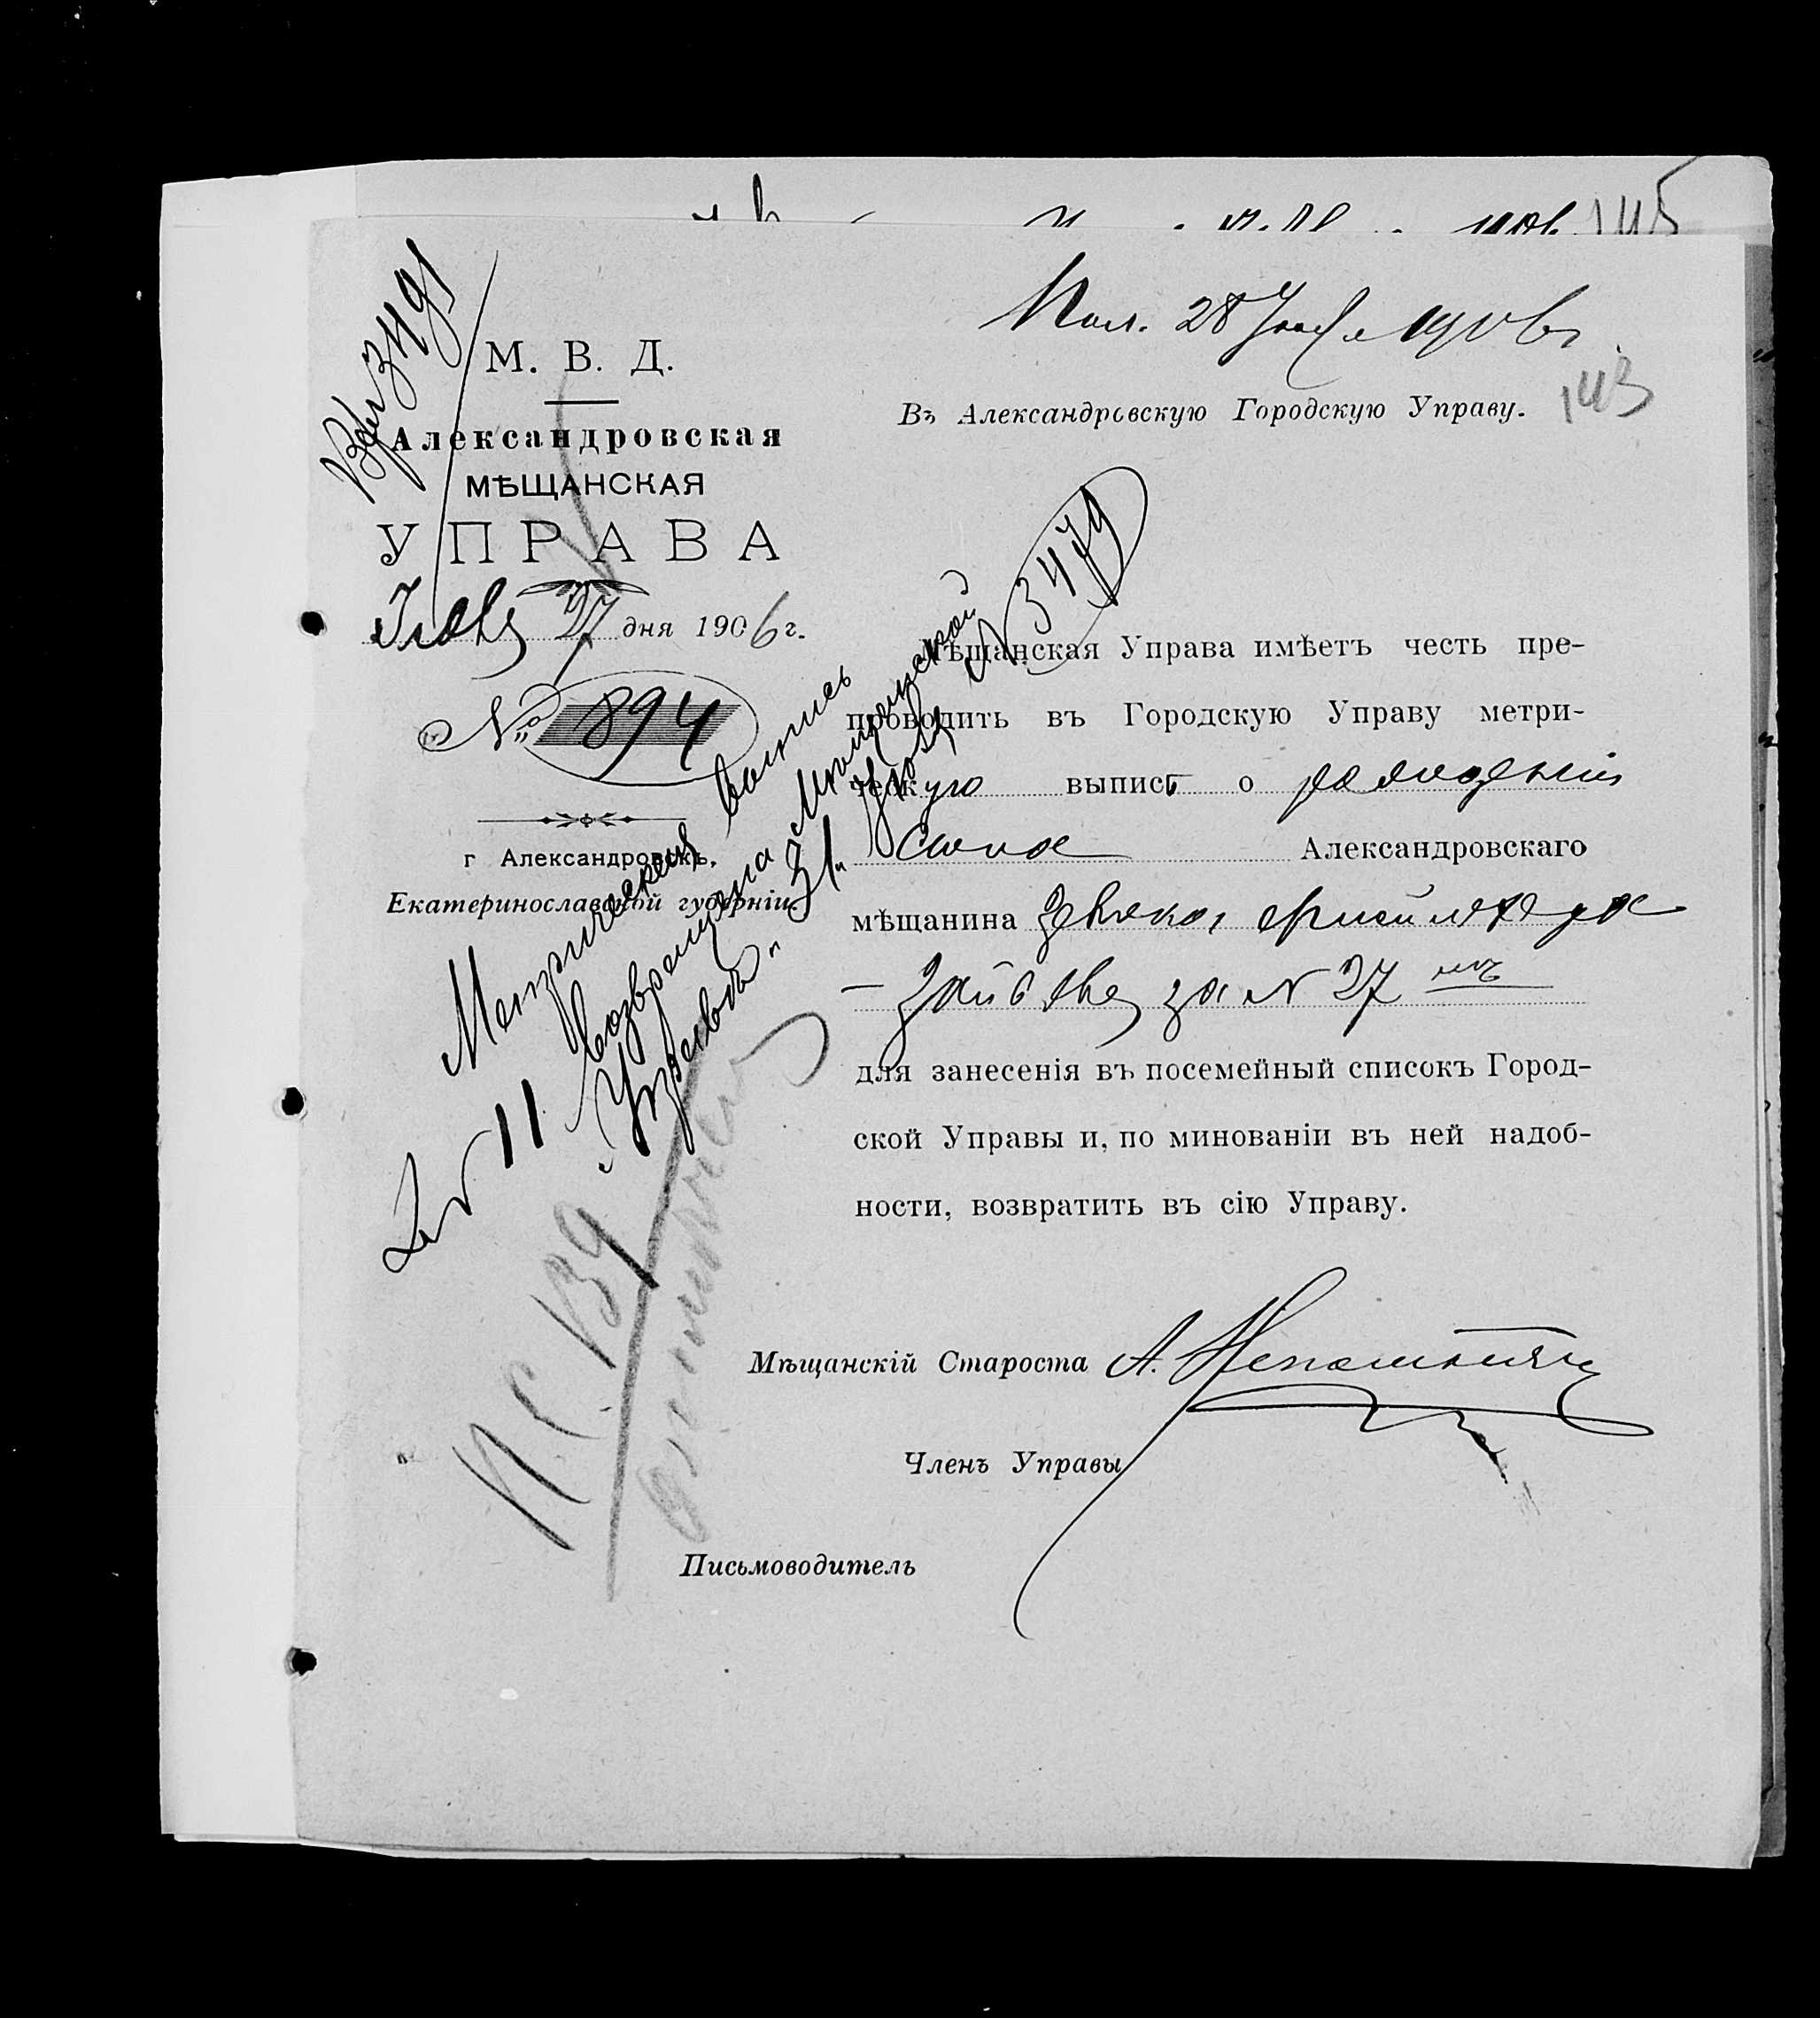 145
Пол. 28 Іюля 1906 г.
143
М. В. Д.
Александровская
МѢЩАНСКАЯ
УПРАВА
Іюля 27 дня 1906 г.
№ 894
г Александровскъ,
Екатеринославской губерніи.
Въ Александровскую Городскую Управу.
Мѣщанская Управа имѣетъ честь пре-
проводить въ Городскую Управу метри-
ческую выпись о рожденіи
сына Александровскаго
мѣщанина
за № 27
для занесенія въ посемейный списокъ Город-
ской Управы и, по минованіи въ ней надоб-
ности, возвратить въ сію Управу.
Мѣщанскій Староста А.
Членъ Управы
Письмоводитель
3491
Метрическая выпись
возвращена Мѣщанской
Управѣ 31 Іюля № 3479
№ 11
П. С. 139